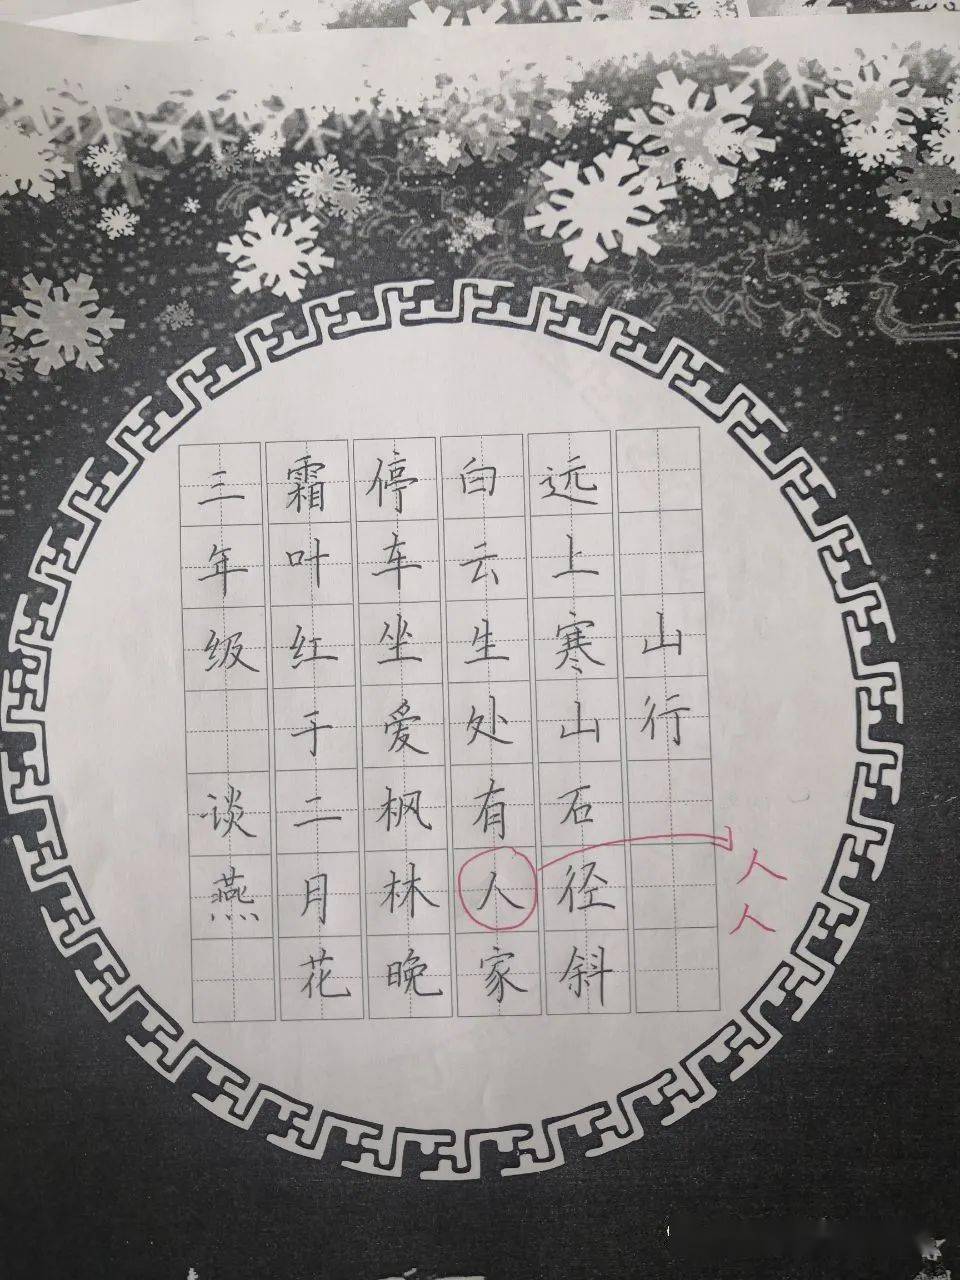 山行
远上寒山石径斜
白云生处有人家
停车坐爱枫林晚
霜叶红于二月花
三年级 谈燕
人
人